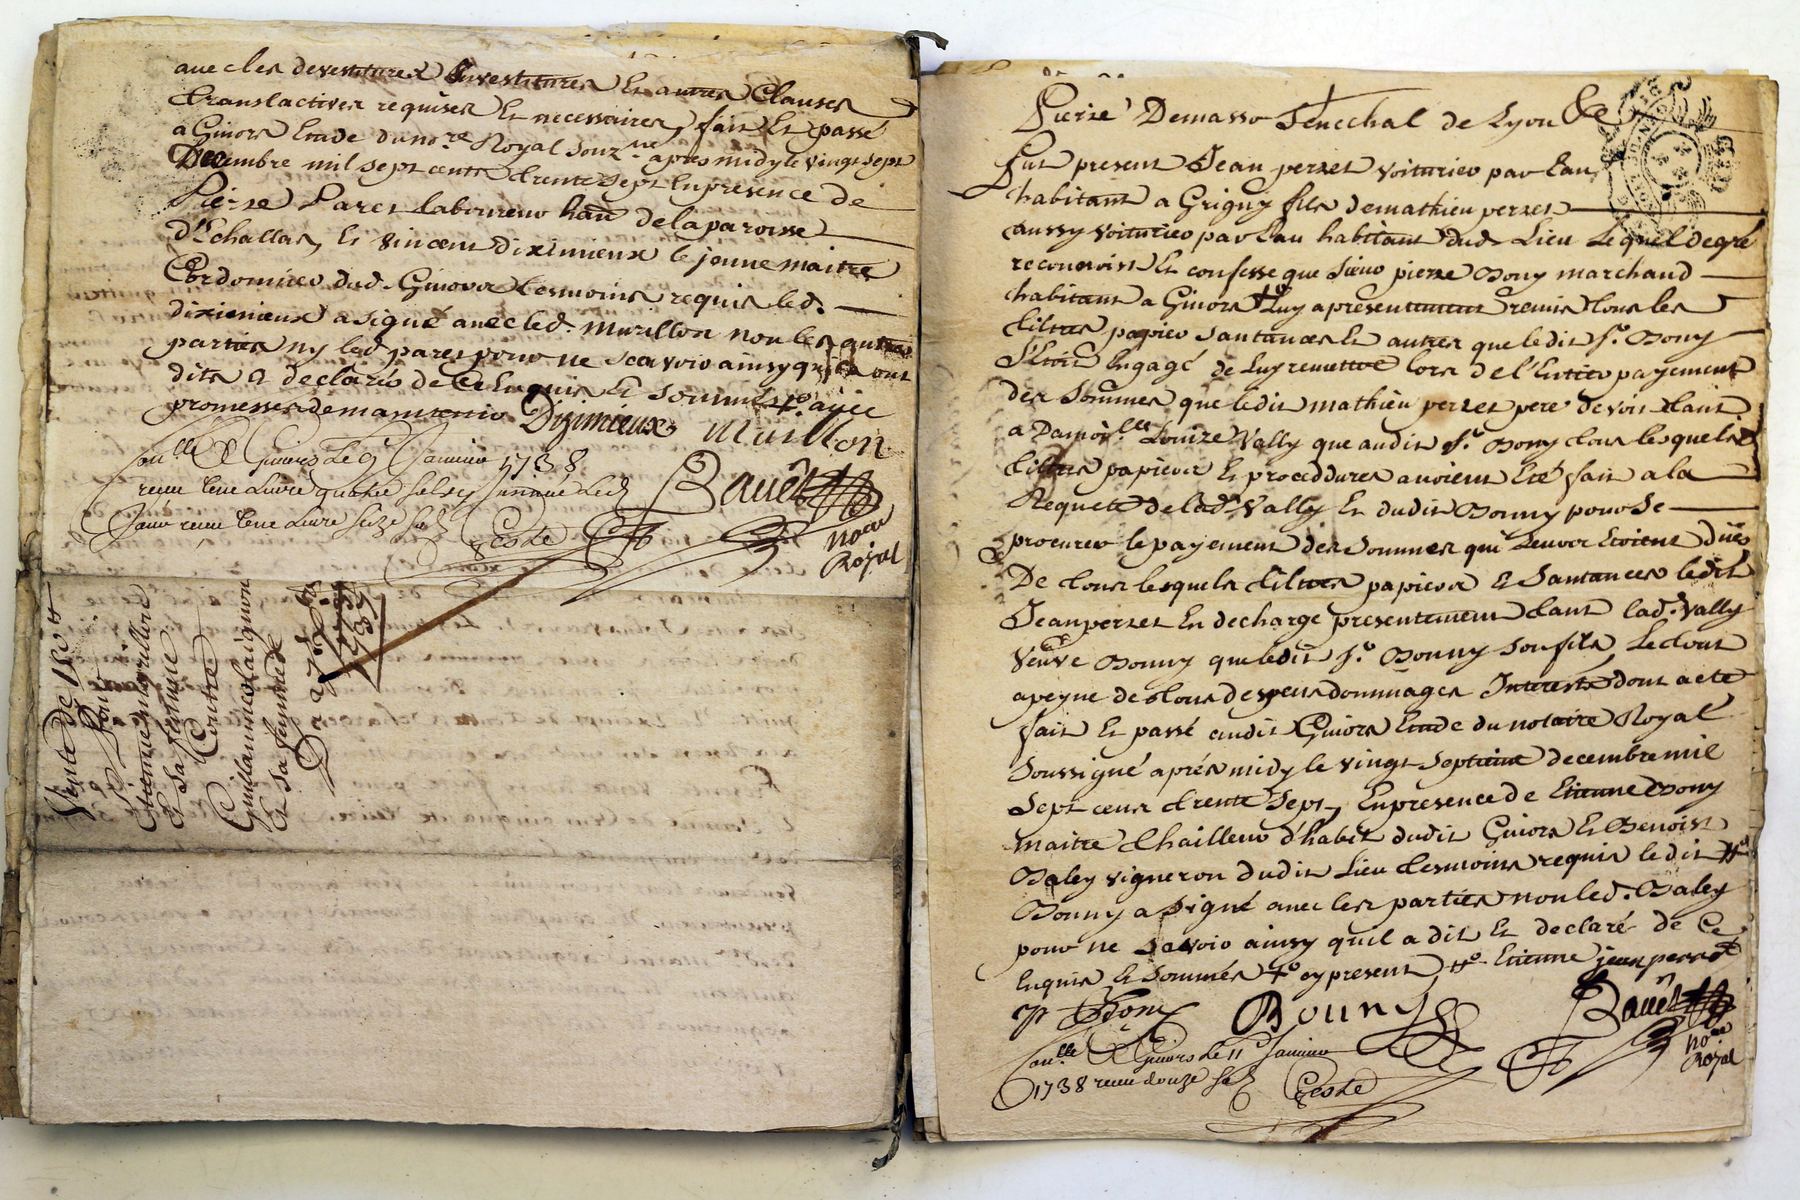 avec les devestitures Investitures Et autres Clauses
translactives requises Et necessaires, fait Et passé
a Givors Etude du no.re Royal souz.né apres midy le vingt sept
Decembre mil sept cents trente sept En presence de
Pierre Paret laboureur han de la paroisse
d'Echallas, Et Vincent diximieux le jeune maitre
Cordonnier dud. Givors tesmoins requis led.
diximieux a signé avec led. Murillon non les autres
parties ny led paret pour ne scavoir ainsy quils ont
dits & declarés de Ce Enquis Et sommés
promesses de maintenir Diximieux Murillon
Con.lle A Givors Le 9 Janvier 1738
receu une Livre quatre sols
receu une Livre seize s
Coste Bavet no.re Royal
Vente de
Pour
Etienne murillon
Et Sa femme
Contre
Guillaume
Et sa femme
Pierre Demasso Senechal de Lyon &c
fut present Jean perret voiturier par Eau
habitant a Grigny fils de mathieu perret
aussy voiturier par Eau habitant dud. Lieu Lequel de gré
reconnoist Et confesse que sieur pierre Bony marchand
habitant a Givors luy a presentement remis tous les
tiltres papiers santances Et autres que ledit s.r Bony
s'Etoit Engagé de luy remettre lors de l'Entier payement
des sommes que ledit mathieu perret pere devoit tant
a Damoi.lle Louize Vally que audit s.r Bony tous lesquels
tiltres papiers Et proceddures avoient Eté fait a la
Requete de lad. Vally Et dudit Bonny pour se
procurer le payement des sommes qui Leurs Etoient dües
De tous lesquels tiltres papiers & Santances ledit
Jean perret En decharge presentement tant lad. Vally
veuve Bonny que ledit s.r Bonny son fils, Le tout
a peyne de tous despens dommages Interests dont acte
fait Et passé audit Givors Etude du notaire Royal
soussigné aprés midy le vingt septieme decembre mil
sept cens trente sept, En presence de Etienne Bony
maitre thailleur d'habit dudit Givors Et Benoist
Baley vigneron dudit Lieu tesmoins requis ledit #
Bonny a signé avec les parties non led. Baley
pour ne scavoir ainsy quil a dit Et declaré de Ce
Enquis Et sommés +º cy present #º Etienne jean perret
Bony Bonny Bavet no.re Royal
Con.lle A Givors Le 11 Janvier
1738 receu douze s Coste